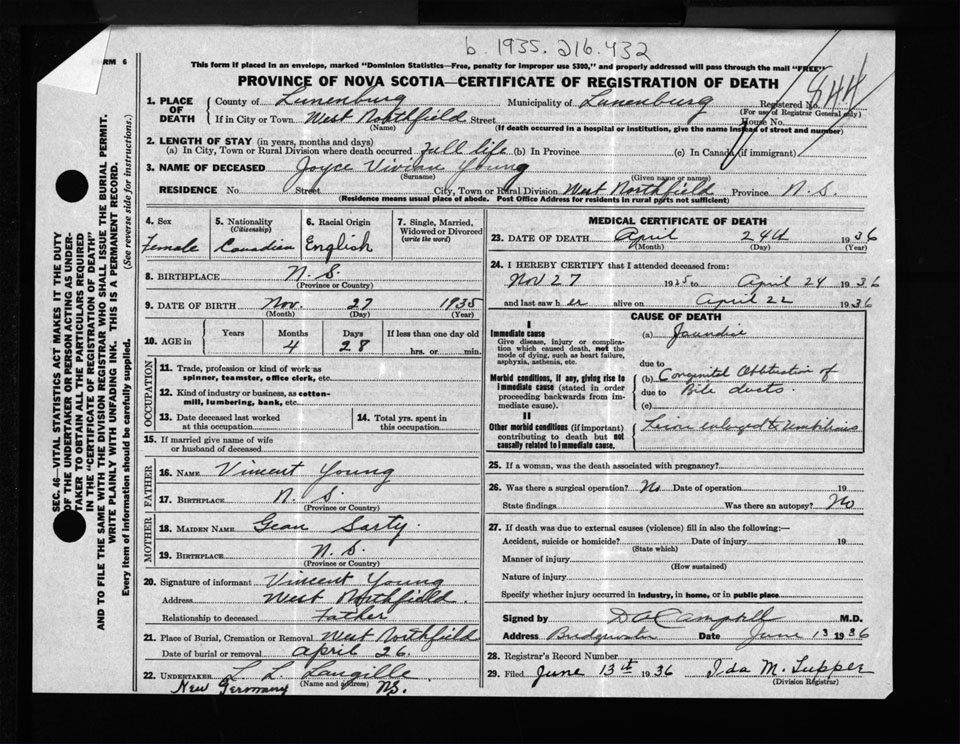 b. 1935. 216.432
844
FORM 6
This form if placed in an envelope, marked "Dominion Statistics—Free, penalty for improper use $300," and properly addressed will pass through the mail "FREE"
PROVINCE OF NOVA SCOTIA—CERTIFICATE OF REGISTRATION OF DEATH
SEC. 46—VITAL STATISTICS ACT MAKES IT THE DUTY
OF THE UNDERTAKER OR PERSON ACTING AS UNDER-
TAKER TO OBTAIN ALL THE PARTICULARS REQUIRED
IN THE "CERTIFICATE OF REGISTRATION OF DEATH"
AND TO FILE THE SAME WITH THE DIVISION REGISTRAR WHO SHALL ISSUE THE BURIAL PERMIT.
WRITE PLAINLY WITH UNFADING INK. THIS IS A PERMANENT RECORD.
Every item of information should be carefully supplied. (See reverse side for instructions.)
1. PLACE OF DEATH County of Lunenburg Municipality of Lunenburg Registered No.
(For use of Registrar General only)
If in City or Town West Northfield Street House No.
(Name) (If death occurred in a hospital or institution, give the name instead of street and number)
2. LENGTH OF STAY (in years, months and days)
(a) In City, Town or Rural Division where death occurred Full life (b) In Province (c) In Canada (if immigrant)
3. NAME OF DECEASED Joyce Vivian Young
(Surname) (Given name or names)
RESIDENCE No Street City, Town or Rural Division West Northfield Province N.S.
(Residence means usual place of abode. Post Office Address for residents in rural parts not sufficient)
4. Sex Female
5. Nationality (Citizenship) Canadian
6. Racial Origin English
7. Single, Married, Widowed or Divorced (write the word)
8. BIRTHPLACE N.S.
(Province or Country)
9. DATE OF BIRTH Nov. 27 1935
(Month) (Day) (Year)
10. AGE in Years Months 4 Days 28 If less than one day old hrs. or min.
OCCUPATION
11. Trade, profession or kind of work as spinner, teamster, office clerk, etc.
12. Kind of industry or business, as cotton-mill, lumbering, bank, etc.
13. Date deceased last worked at this occupation
14. Total yrs. spent in this occupation
15. If married give name of wife or husband of deceased
FATHER
16. NAME Vincent Young
17. BIRTHPLACE N.S.
(Province or Country)
MOTHER
18. MAIDEN NAME Gean Sarty
19. BIRTHPLACE N.S.
(Province or Country)
20. Signature of informant Vincent Young
Address West Northfield
Relationship to deceased Father
21. Place of Burial, Cremation or Removal West Northfield
Date of burial or removal April 26
22. UNDERTAKER L. L. Langille
(Name and address)
New Germany N.S.
MEDICAL CERTIFICATE OF DEATH
23. DATE OF DEATH April 24th 1936
(Month) (Day) (Year)
24. I HEREBY CERTIFY that I attended deceased from:
Nov 27 1935 to April 24 1936
and last saw her alive on April 22 1936
CAUSE OF DEATH
I
Immediate cause
Give disease, injury or complication which caused death, not the mode of dying, such as heart failure, asphyxia, asthenia, etc.
(a) Jaundice
due to
Morbid conditions, if any, giving rise to immediate cause (stated in order proceeding backwards from immediate cause).
(b) Congenital Obliteration of
due to Bile ducts.
(c)
II
Other morbid conditions (if important) contributing to death but not causally related to immediate cause.
enlarged to Umbilicus
25. If a woman, was the death associated with pregnancy?
26. Was there a surgical operation? No Date of operation 19
State findings Was there an autopsy? No
27. If death was due to external causes (violence) fill in also the following:—
Accident, suicide or homicide? Date of injury 19
(State which)
Manner of injury
(How sustained)
Nature of injury
Specify whether injury occurred in industry, in home, or in public place
Signed by D A Campbell M.D.
Address Bridgewater Date June 13 1936
28. Registrar's Record Number
29. Filed June 13th 1936 Ida M. Tupper
(Division Registrar)